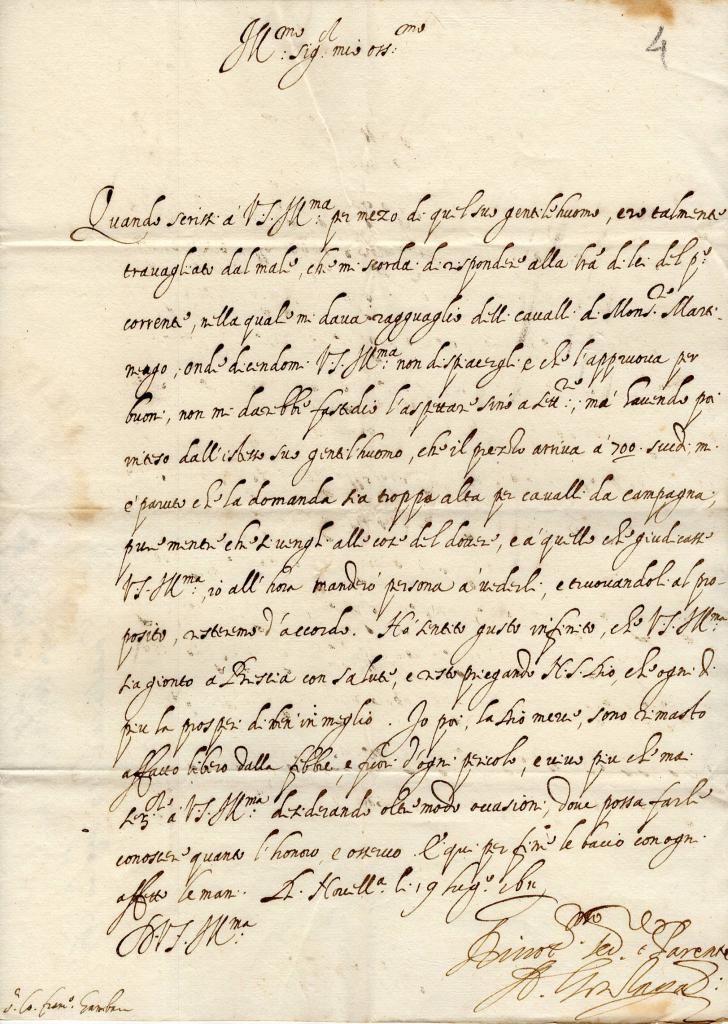 Ill.mo Sig. mio oss.mo
4
Quando scrissi à V.S. Ill.ma per mezo di quel suo gentilhuomo, ero talmente
travagliato dal male, che mi scordai di rispondere alla l.ra di lei del p.o
corrente, nella quale mi dava ragguaglio delli cavalli di Mons.r Marti-
nengo, onde dicendomi V.S. Ill.ma non dispiacergli e che l'appruova per
buoni, non mi darebbe fastidio l'aspettare sino a Sett.re, mà havendo poi
inteso dall'istesso suo gentilhuomo, che il prezzo arriva à 700. scudi, mi
è paruto che la domanda sia troppo alta per cavalli da campagna,
pure mentre che si venghi alle cose del dovere, e à quello che giudicasse
V.S. Ill.ma, io all'hora manderò persona à vederli, e truovandoli al pro-
posito, resteremo d'accordo. Hò sentito gusto infinito, che V.S. Ill.ma
sia gionto a Brescia con salute, e resto pregando N.S. Dio, che ogni dì
più la prosperi di ben in meglio. Io poi, la Dio mercè, sono rimasto
affatto libero dalla febbre, e fuori d'ogni pericolo, e vivo più che mai
Ser.re à V.S. Ill.ma desiderando oltre modo occasioni, dove possa farle
conoscere quanto l'honoro, e osservo. E qui per fine le bacio con ogni
affetto le mani. Di Novell.a li 19 lug.o 1611
D.V.S. Ill.ma
Ser.re e Parente
S.r Co. Fran.o Gambara